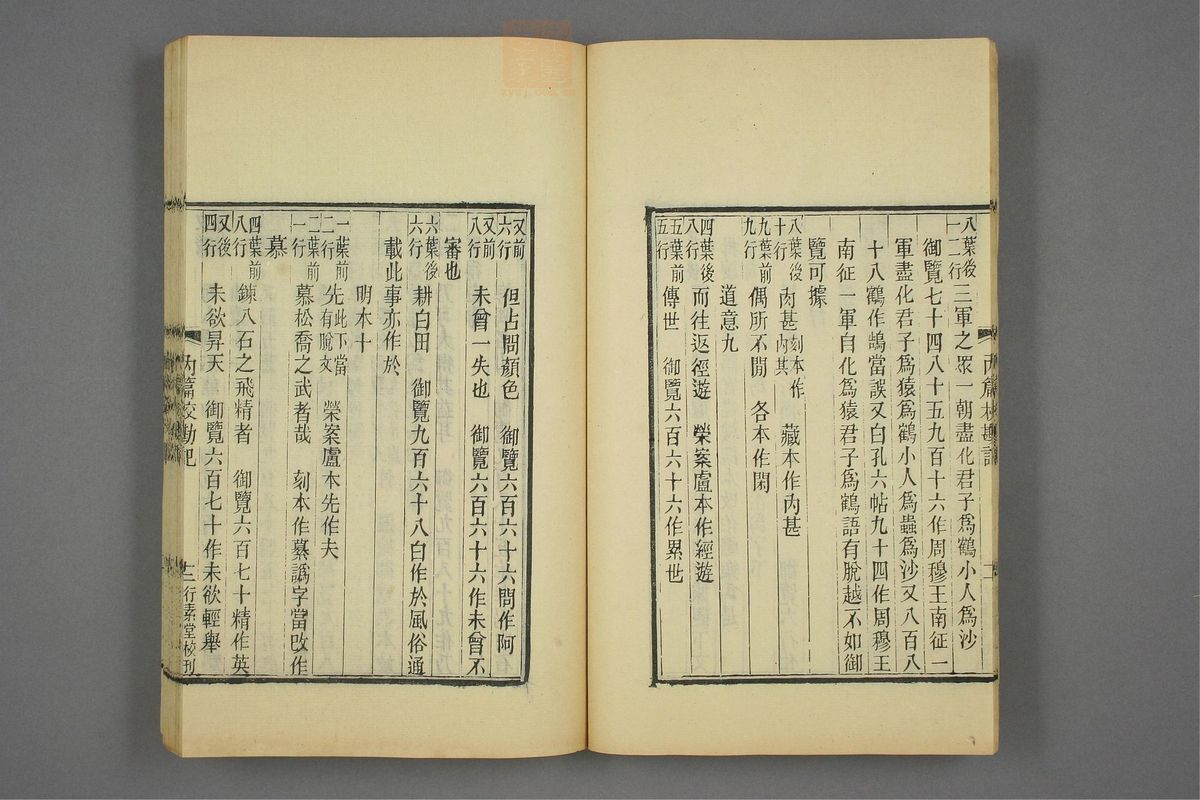 八葉後一二行三軍之眾一朝盡化君子爲鶴小人爲沙
御覽七十四八十五九百十六作周穆王南征一
軍盡化君子爲猿爲鶴小人爲蟲爲沙又八百八
十八鶴作鵠當誤又白孔六帖九十四作周穆王
南征一軍自化爲猿君子爲鶴語有脫越不如御
覽可據
八葉後十行內甚刻本作內其 藏本作內甚
九葉前九行偶所不閒 各本作閑
道意九
四葉後八行而往返徑遊 榮案盧本作經遊
五葉前五行傳世 御覽六百六十六作累世
內篇校勘記
又前六行但占問顏色 御覽六百六十六問作阿
又前八行未曾一失也 御覽六百六十六作未曾不
審也
六葉後六行耕白田 御覽九百六十八白作於風俗通
載此事亦作於
明本十
一葉前二行先此下當先有脫文 榮案盧本先作夫
二葉前一行慕松喬之武者哉 刻本作纂譌字當改作
慕
四葉前八行鍊八石之飛精者 御覽六百七十精作英
又後四行未欲昇天 御覽六百七十作未欲輕舉
內篇校勘記 十二 行素堂校刊